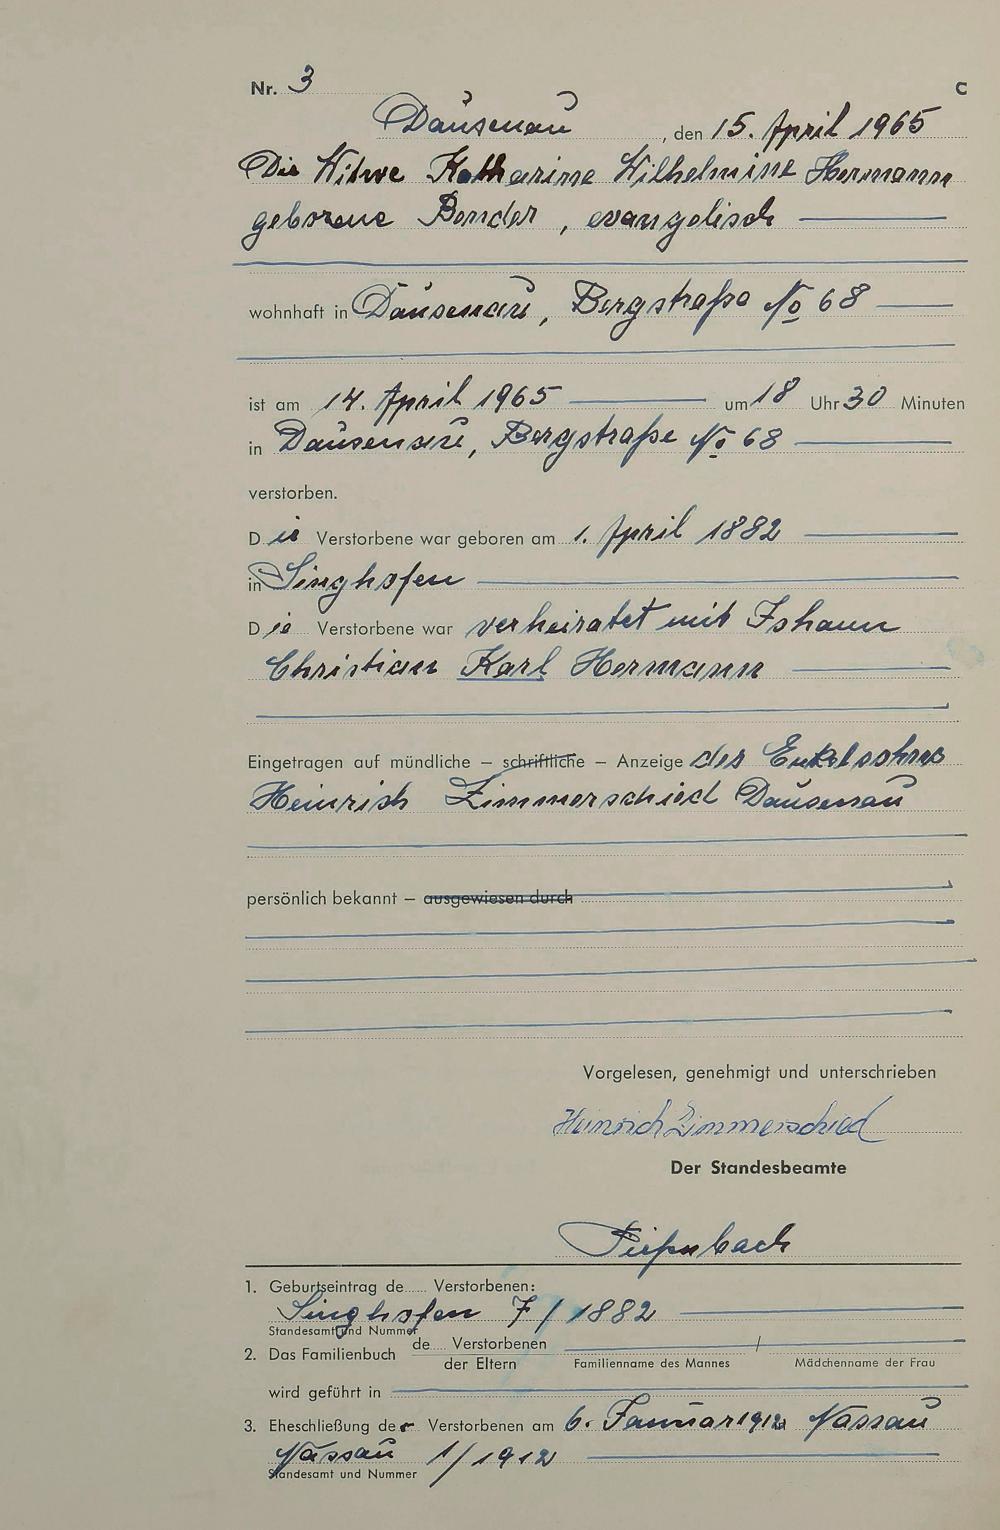 Nr. 3
C
Dausenau, den 15. April 1965
Die Witwe Katharine Wilhelmine Hermann
geborene Bender, evangelisch
wohnhaft in Dausenau, Bergstraße No 68
ist am 14. April 1965 um 18 Uhr 30 Minuten
in Dausenau, Bergstraße No 68
verstorben.
Die Verstorbene war geboren am 1. April 1882
in Singhofen
Die Verstorbene war verheiratet mit Johann
Christian Karl Hermann
Eingetragen auf mündliche – schriftliche – Anzeige des Enkelsohns
Heinrich Zimmerschied Dausenau
persönlich bekannt – ausgewiesen durch
Vorgelesen, genehmigt und unterschrieben
Heinrich Zimmerschied
Der Standesbeamte
1. Geburtseintrag de...... Verstorbenen:
Singhofen 7/1882
Standesamt und Nummer
2. Das Familienbuch de.... Verstorbenen
der Eltern Familienname des Mannes Mädchenname der Frau
wird geführt in
3. Eheschließung der Verstorbenen am 6. Januar 1912 Nassau
Nassau 1/1912
Standesamt und Nummer